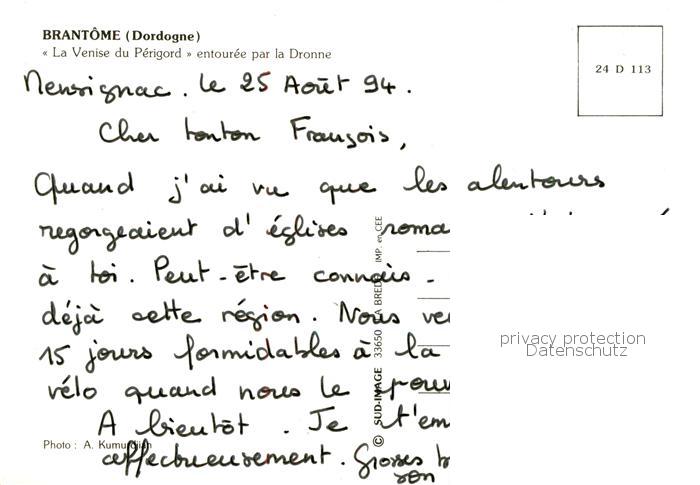 BRANTÔME (Dordogne)
« La Venise du Périgord » entourée par la Dronne
24 D 113
Mensignac. le 25 Août 94.
Cher tonton François,
Quand j'ai vu que les alentours
regorgeaient d'églises roma
à toi. Peut-être connais-
déjà cette région. Nous ve
15 jours formidables à la
vélo quand nous le pouv
A bientôt. Je t'em
affectueusement. Grosses b
son
Photo : A. Kumurdjian
© SUD-IMAGE 33650 LA BREDE IMP. en CEE
privacy protection
Datenschutz